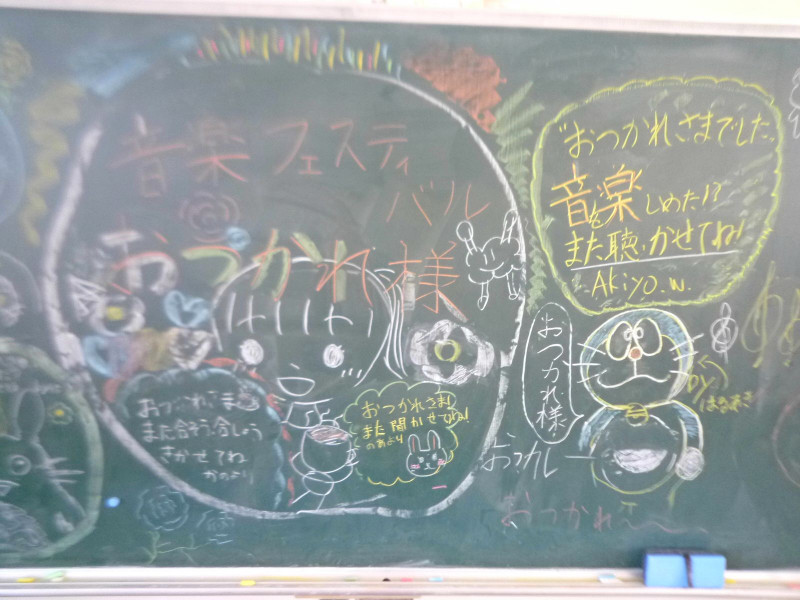 音楽フェスティ
バル
おつかれ様
おつかれさま
また合う合しょう
きかせてね
かのより
おつかれさま!
また聞かせてね!
のあより
"おつかれさまでした。
音楽をしめた!?
また聴かせてね!
Akiyo.w.
おつかれ様。
by
はるあき
おつカレ
おつかれ〜〜